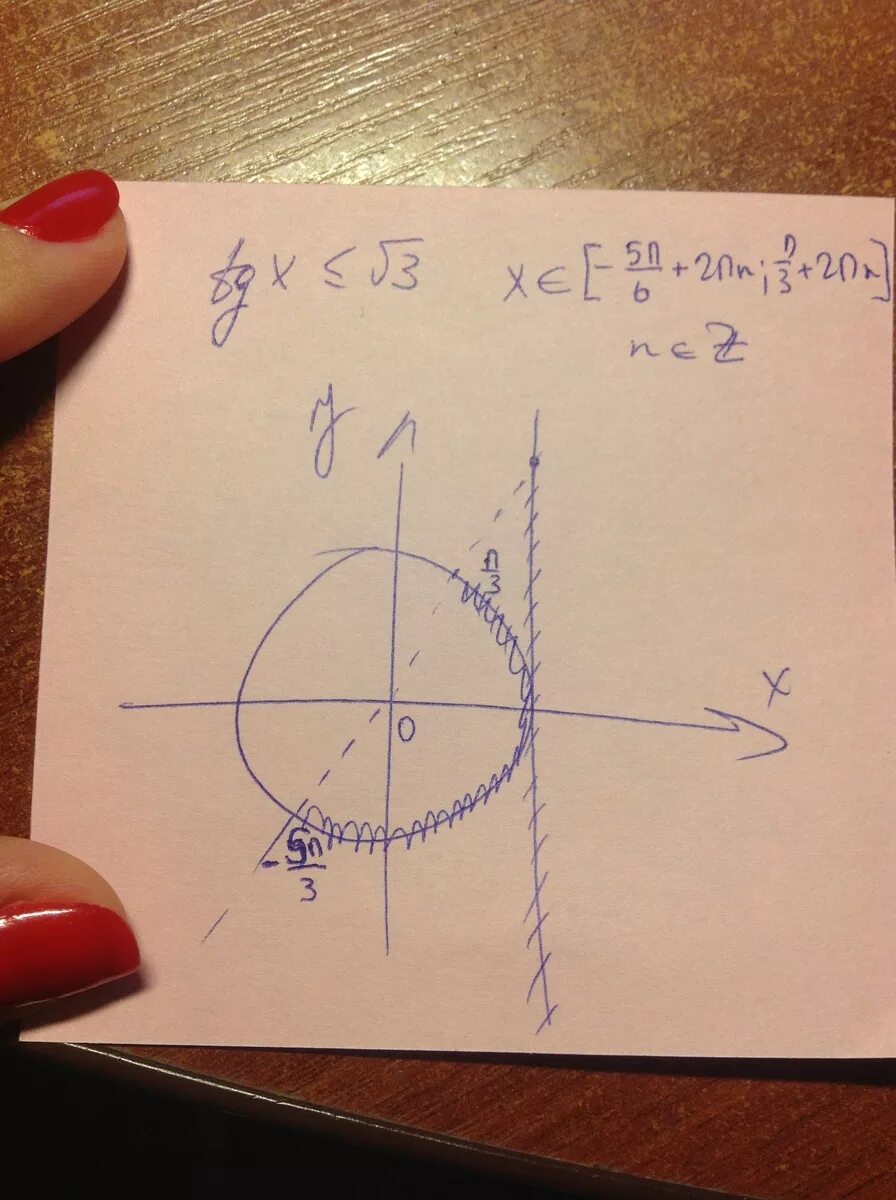 tg x ≤ √3 x ∈ [-5π/6 + 2πn; π/3 + 2πn]
n ∈ Z
y
π/3
x
0
-5π/3